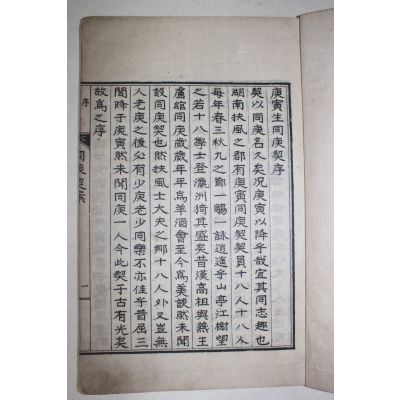 庚寅生同庚契序
契以同庚名久矣況庚寅以降乎哉宜其同志趣也
湖南扶風之郡有庚寅同庚契契員十八人十八人
每年春三秋九之節一觴一詠逍遙乎山亭江榭望
之若十八學士登瀛洲猗其盛矣昔漢高祖與燕王
盧綰同庚歲歲年年爲羊酒會至今爲美談然未聞
設同庚契也然扶風士大夫之鄕十八人外又豈無
人老庚之後必有少庚老少同樂不亦佳乎昔屈三
閭降于庚寅然未聞同庚一人今此契于古有光矣
故爲之序
序
同庚契案
一